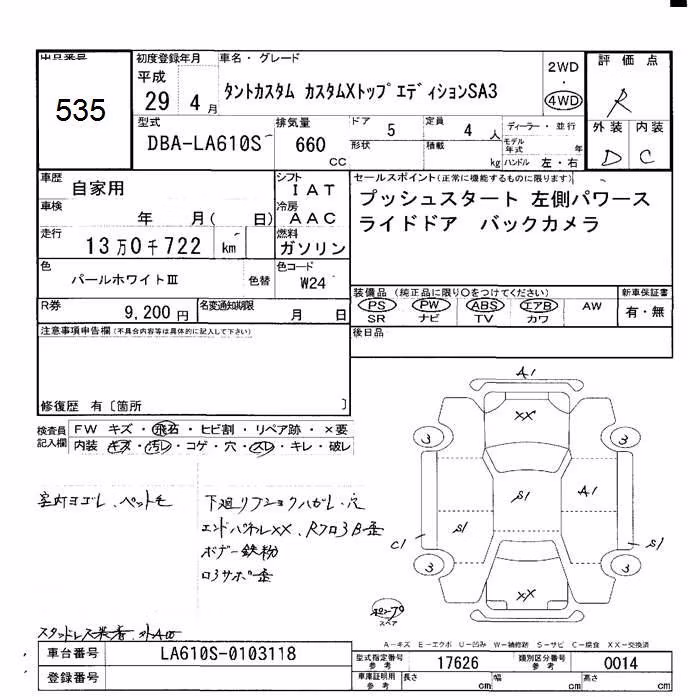 出品番号
535
初度登録年月
平成
29 4 月
車名・グレード
タントカスタム カスタムXトップエディションSA3
2WD
・
4WD
評価点
R
外装 内装
D C
型式
DBA-LA610S
排気量
660
CC
ドア 5
形状
定員 4 人
積載 kg
ディーラー・並行
モデル年式 年
ハンドル 左・右
車歴
自家用
車検
年 月( 日)
走行
13万0千722 km
シフト
IAT
冷房
AAC
燃料
ガソリン
セールスポイント(正常に機能するものに限ります)
プッシュスタート 左側パワース
ライドドア バックカメラ
色
パールホワイトⅢ
色替
色コード
W24
装備品(純正品に限り○をつけてください)
PS PW ABS エアB AW
SR ナビ TV カワ
新車保証書
有・無
R券
9,200 円
名変通知期限
月 日
後日品
注意事項申告欄(不具合内容等は具体的に記入して下さい)
修復歴 有〔箇所 〕
検査員記入欄
FW キズ・飛石・ヒビ割・リペア跡・×要
内装 キズ・汚レ・コゲ・穴・スレ・キレ・破レ
室灯ヨゴレ、ペット毛
下廻リ
穴
エンドパネルXX、
ボデー鉄粉
スタッドレス
A1
XX
3
3
S1
A1
S1
C1
S1
3
3
XX
スペア
A-キズ E-エクボ U-凹み W-補修跡 S-サビ C-腐食 XX-交換済
車台番号
LA610S-0103118
登録番号
型式指定番号
参考
17626
類別区分番号
参考
0014
車庫証明用
参考
長さ cm
幅 cm
高さ cm